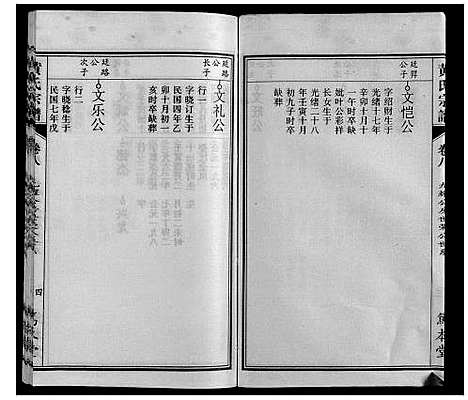 黄氏宗谱
卷八
廷昇
公子
文恺公
字绍财生于
光绪十七年
辛卯十月十
一午时卒缺
妣叶公彩样
长女生于
光绪二十八
年壬寅十月
初九子时卒
缺葬
敦本堂
廷路
公长
子
文礼公
行一
字晓订生于
民国四年乙
卯十月初一
亥时卒缺葬
廷路
公次
子
文乐公
行二
字晓稔生于
民国七年戊
黄氏宗谱
卷八
四